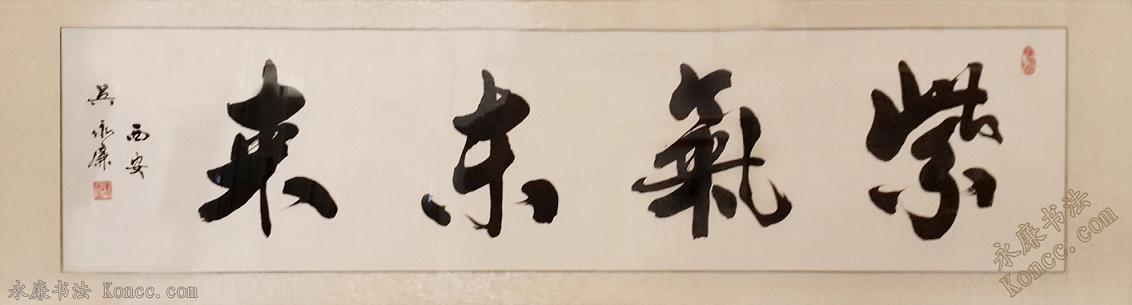 紫氣东來
西安
吴永康
永康书法 Koncc.com
永康书法
Koncc.com